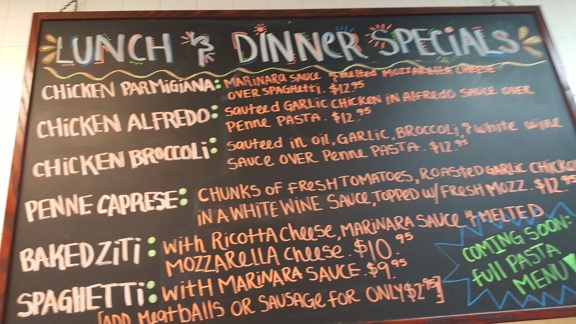 LUNCH & DINNER SPECIALS
CHICKEN PARMIGIANA: MARINARA SAUCE & melted MOZZARELLA CHEESE
OVER SPAGHETTI. $12.95
CHICKEN ALFREDO: sauteed GARLIC CHICKEN IN ALFREDO SAUCE OVER
Penne PASTA. $12.95
CHICKEN BROCCOLI: sauteed in oil, GARLIC, BROCCOLI, & white wine
SAUCE OVER Penne PASTA. $12.95
PENNE CAPRESE: CHUNKS OF FRESH TOMATOES, ROASTED GARLIC CHICKEN
IN A WHITE WINE SAUCE, TOPPED W/ FRESH MOZZ. $12.95
BAKED ZITI: with RICOTTA Cheese, MARINARA SAUCE & MELTED
MOZZARELLA Cheese. $10.95
SPAGHETTI: WITH MARINARA SAUCE. $9.95
[ADD MeatBALLS OR SAUSAGE FOR ONLY $2.95]
COMING SOON:
full PASTA
MENU